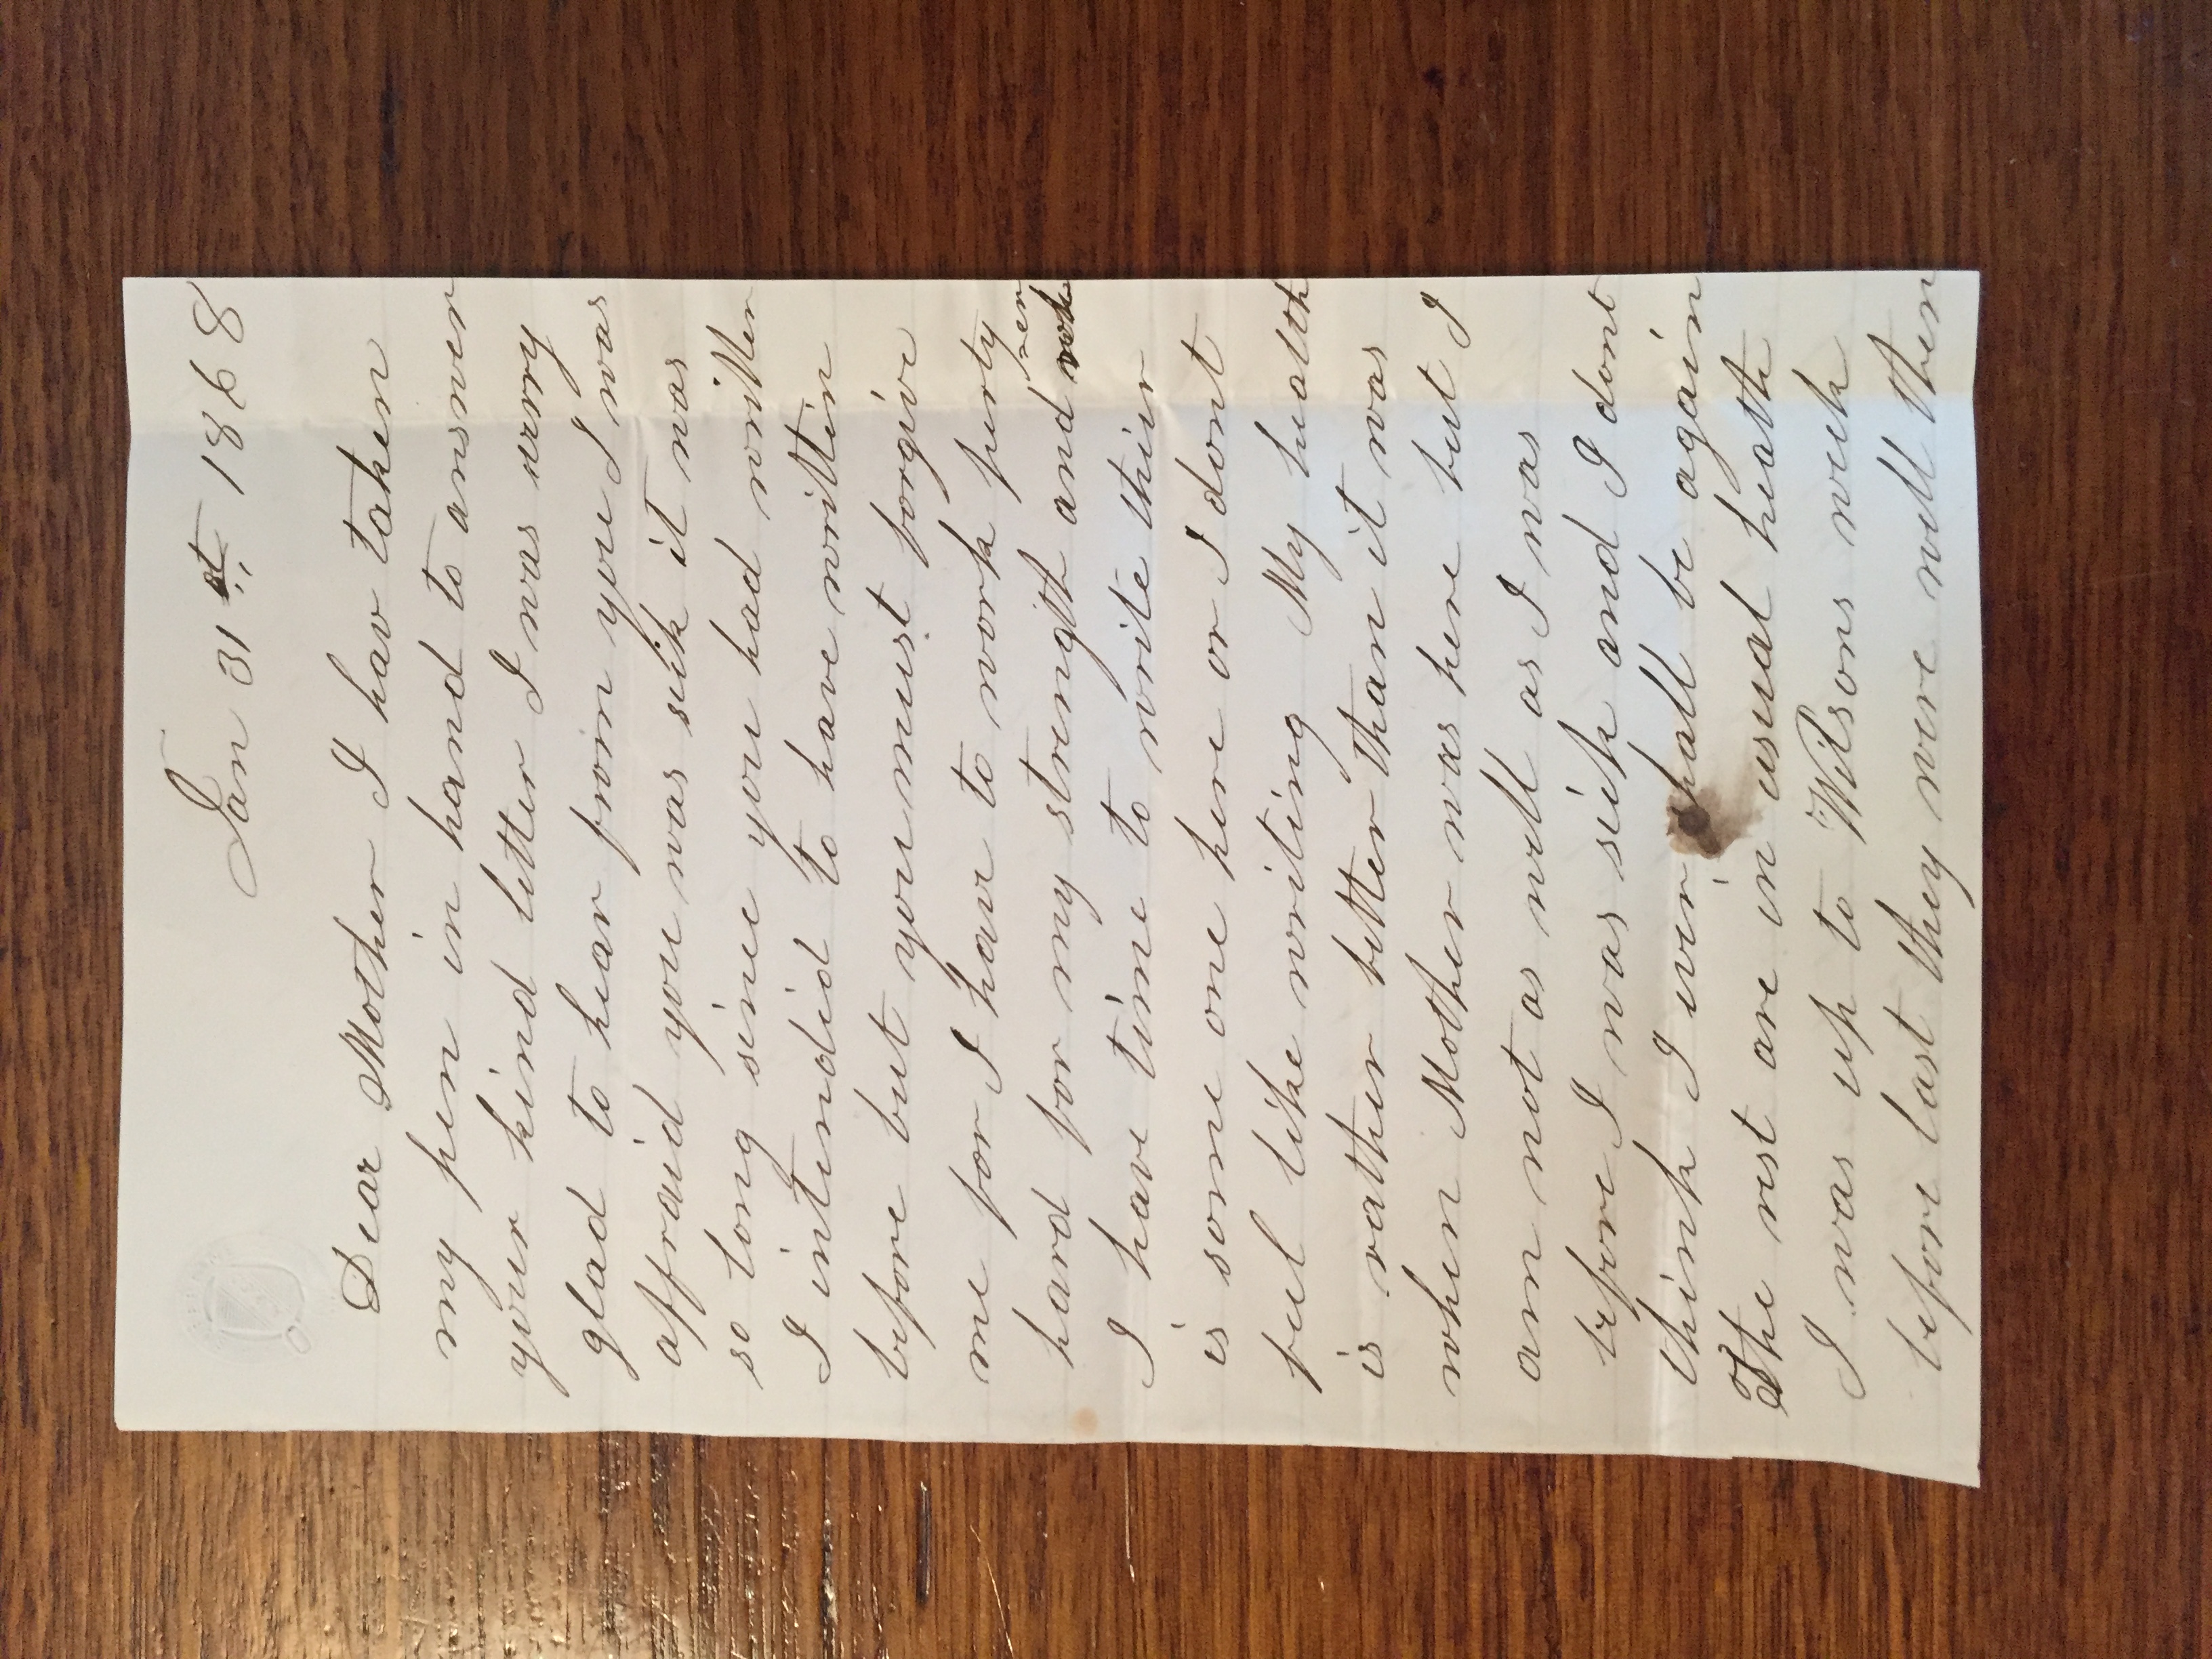 Jan 31st 1868
Dear Mother I hav taken
my pen in hand to answer
your kind letter I was very
glad to hear from you I was
affraid you was sick it was
so long sine you had written
I intended to have written
before but you must forgive
me for I have to work purty
hard for my strength and when
I have time to write thier
is some one here or I dont
feel like writing My health
is rather better than it was
when Mother was here but I
am not as well as I was
before I was sick and I dont
think I ever shall be again
The rest are in usual health
I was up to Wilsons week
before last they were well then